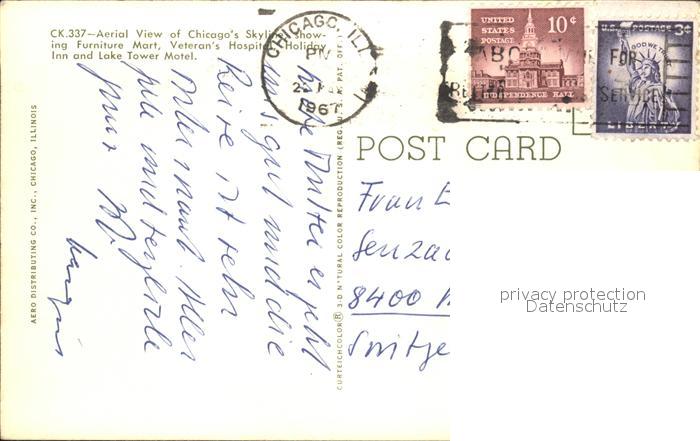 CK.337—Aerial View of Chicago's Skyline show-
ing Furniture Mart, Veteran's Hospital, Holiday
Inn and Lake Tower Motel.
CHICAGO, ILL
PM
1967
UNITED
STATES
POSTAGE
10¢
INDEPENDENCE HALL
U.S. POSTAGE 3¢
IN GOD WE TRUST
LIBERTY
FOR
SERVICE
POST CARD
AERO DISTRIBUTING CO., INC., CHICAGO, ILLINOIS
CURTEICHCOLOR® 3-D NATURAL COLOR REPRODUCTION (REG. U.S.A. PAT. OFF.)
Liebe Mutter es geht
uns gut und die
Reise ist sehr
interessant. Alles
gute und herzliche
Frau E
Senzac
8400
Switze
privacy protection
Datenschutz